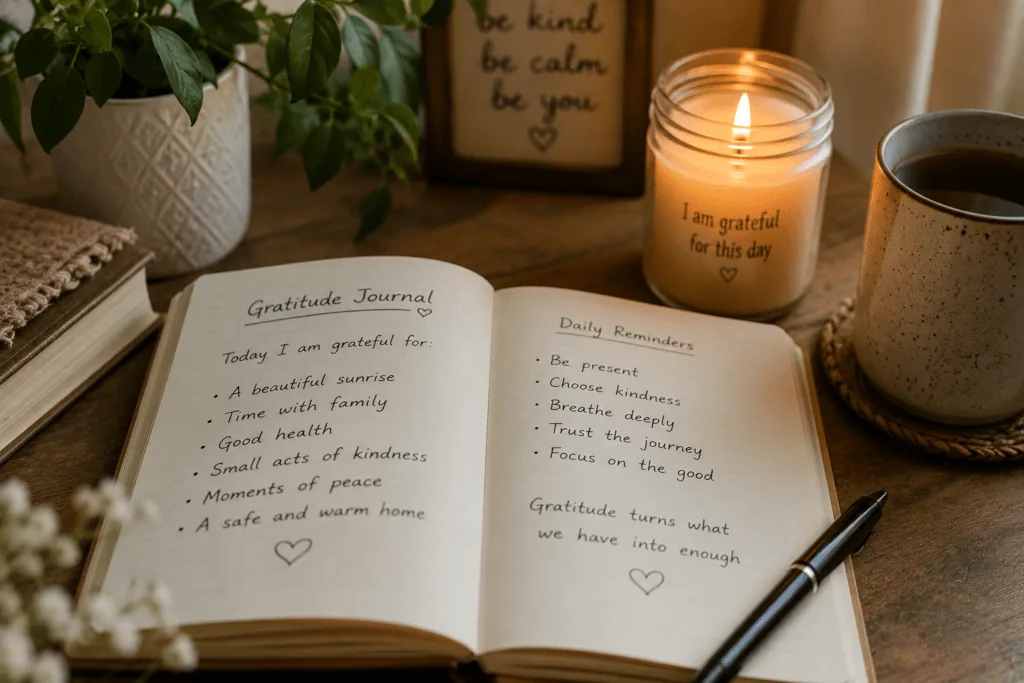 be kind
be calm
be you
I am grateful
for this day
Gratitude Journal
Today I am grateful for:
• A beautiful sunrise
• Time with family
• Good health
• Small acts of kindness
• Moments of peace
• A safe and warm home
Daily Reminders
• Be present
• Choose kindness
• Breathe deeply
• Trust the journey
• Focus on the good
Gratitude turns what
we have into enough